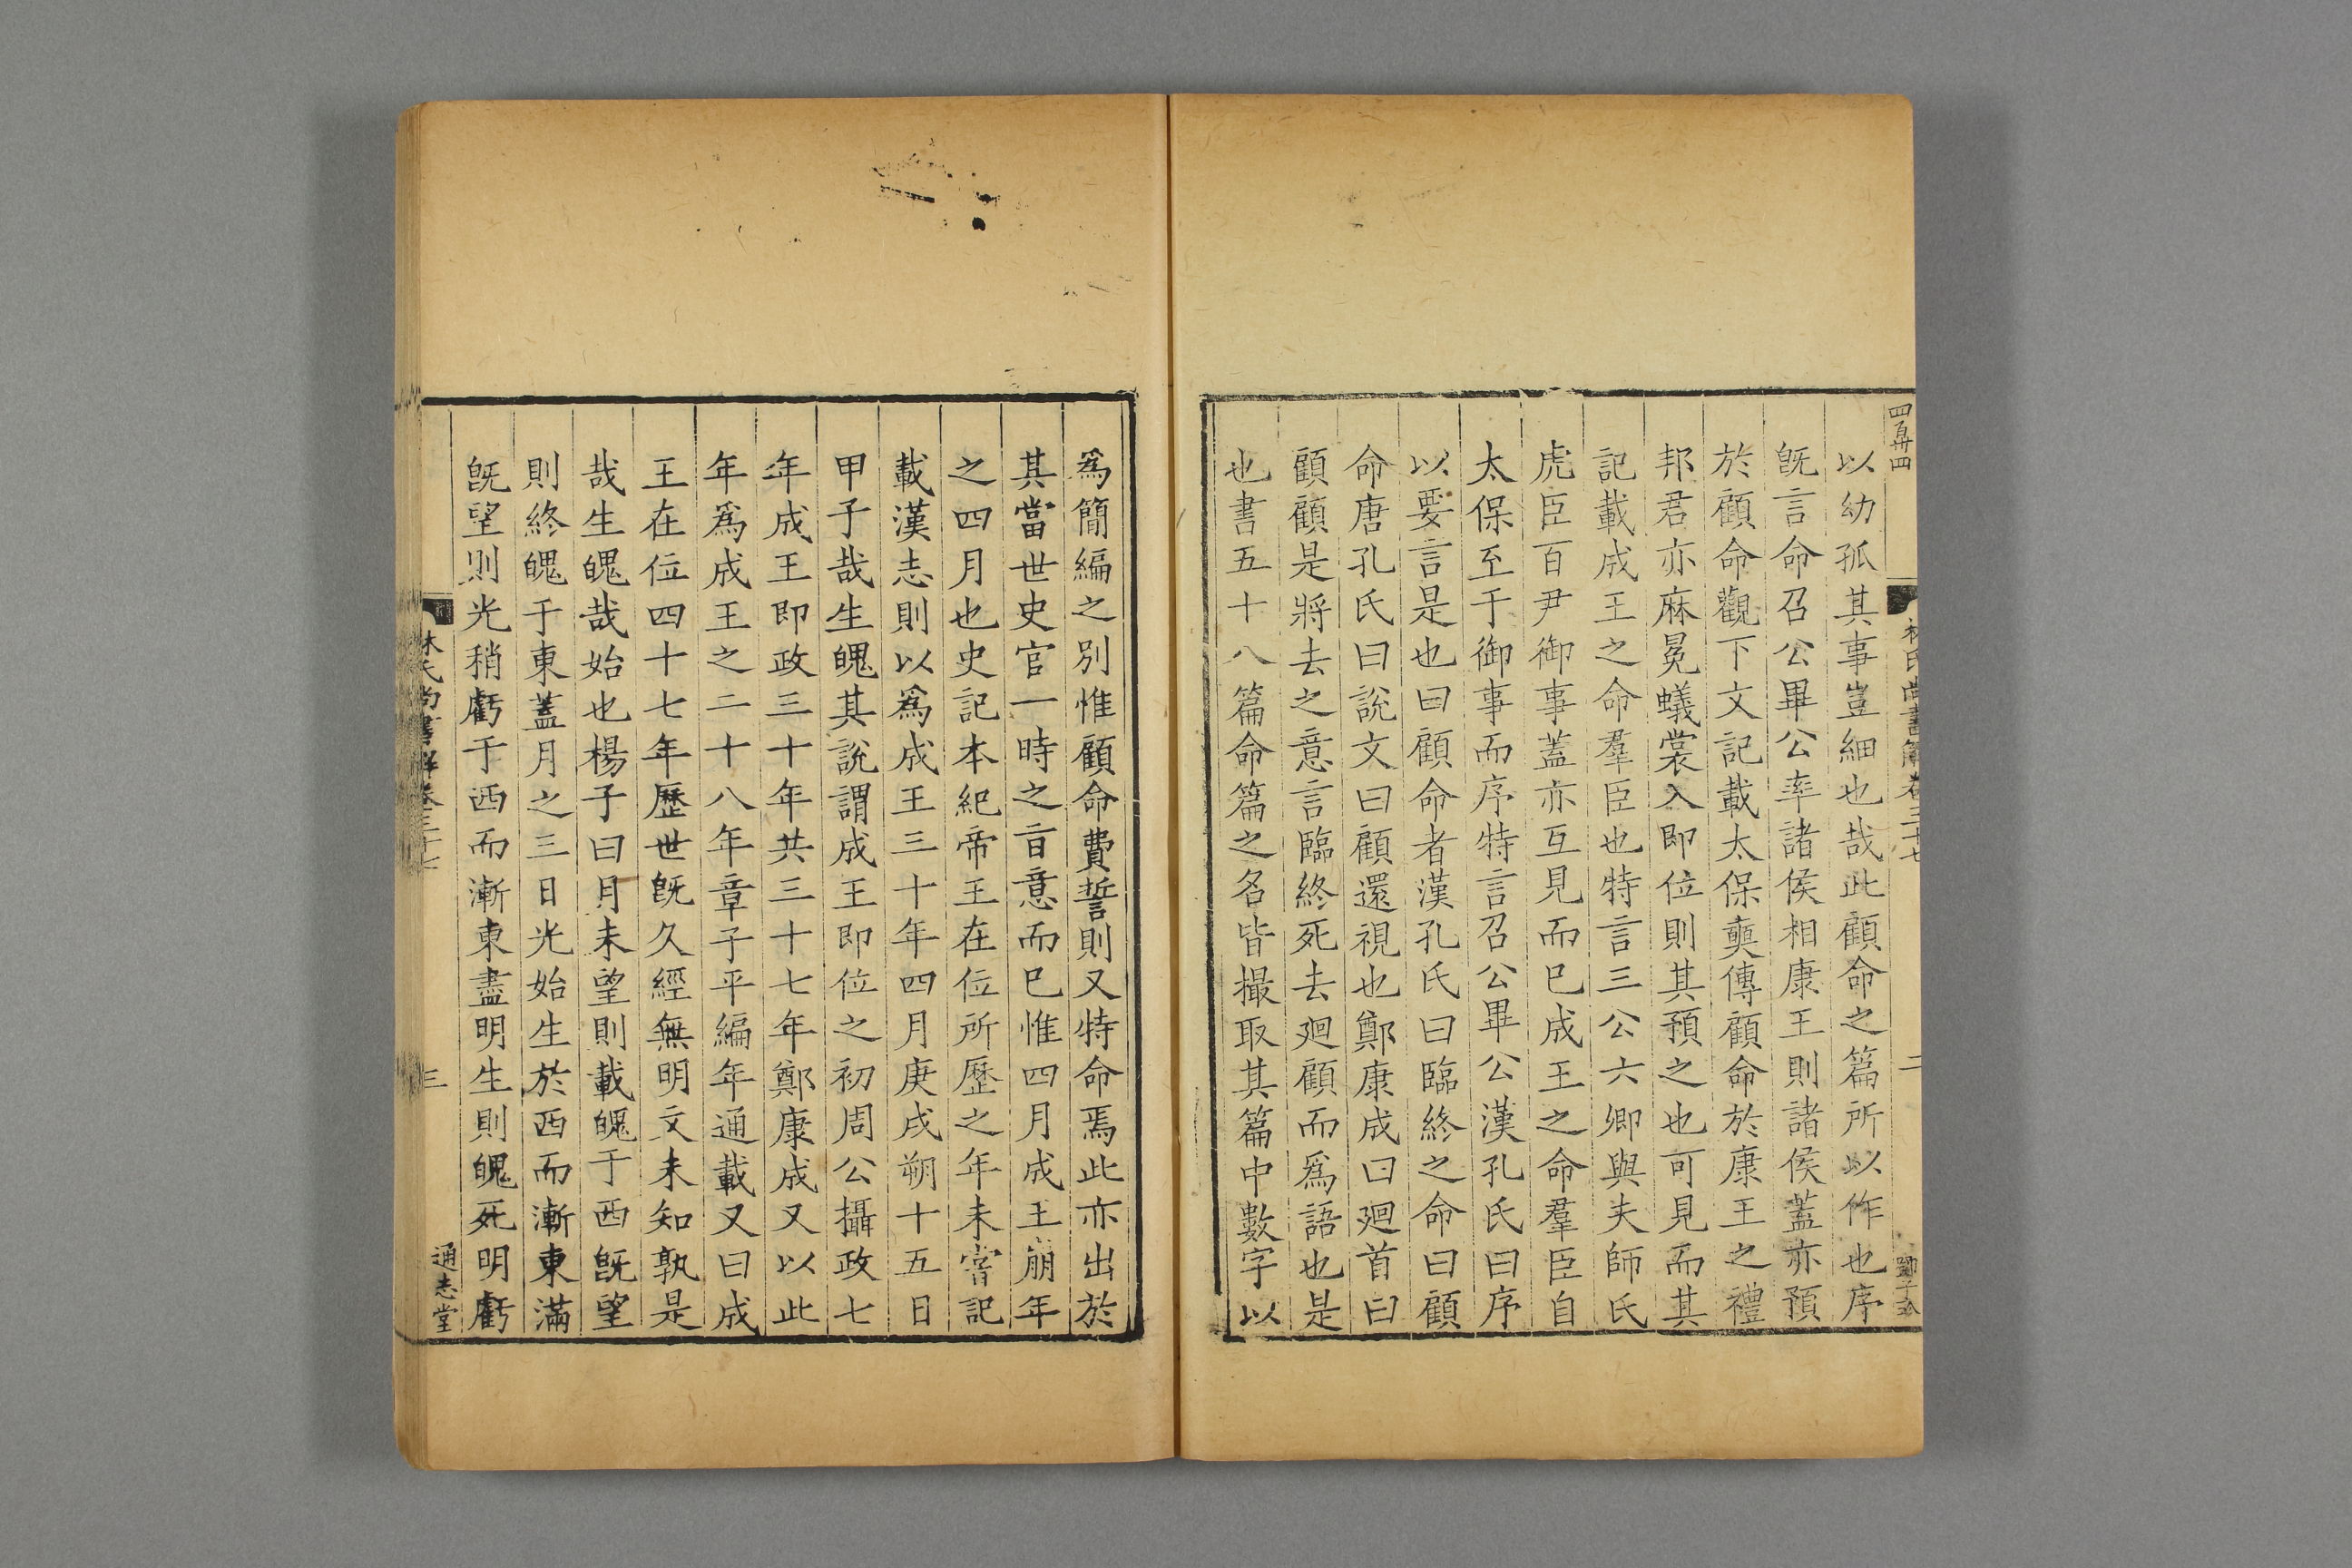 四百卅四
林氏尚書解卷三十七
二
以幼孤其事豈細也哉此顧命之篇所以作也序
旣言命召公畢公率諸侯相康王則諸侯蓋亦預
於顧命觀下文記載太保奭傳顧命於康王之禮
邦君亦麻冕蟻裳入即位則其預之也可見而其
記載成王之命羣臣也特言三公六卿與夫師氏
虎臣百尹御事蓋亦互見而已成王之命羣臣自
太保至于御事而序特言召公畢公漢孔氏曰序
以要言是也曰顧命者漢孔氏曰臨終之命曰顧
命唐孔氏曰說文曰顧還視也鄭康成曰廻首曰
顧顧是將去之意言臨終死去廻顧而爲語也是
也書五十八篇命篇之名皆撮取其篇中數字以
爲簡編之別惟顧命費誓則又特命焉此亦出於
其當世史官一時之㫖意而已惟四月成王崩年
之四月也史記本紀帝王在位所歷之年未甞記
載漢志則以爲成王三十年四月庚戌朔十五日
甲子哉生魄其說謂成王即位之初周公攝政七
年成王即政三十年共三十七年鄭康成又以此
年爲成王之二十八年章子平編年通載又曰成
王在位四十七年歷世旣久經無明文未知孰是
哉生魄哉始也楊子曰月未望則載魄于西旣望
則終魄于東蓋月之三日光始生於西而漸東滿
旣望則光稍虧于西而漸東盡明生則魄死明虧
林氏尚書解卷三十七
三
通志堂